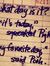 what day is it?
it's today,"
squeaked Piglet
my favorite day,"
said Pooh